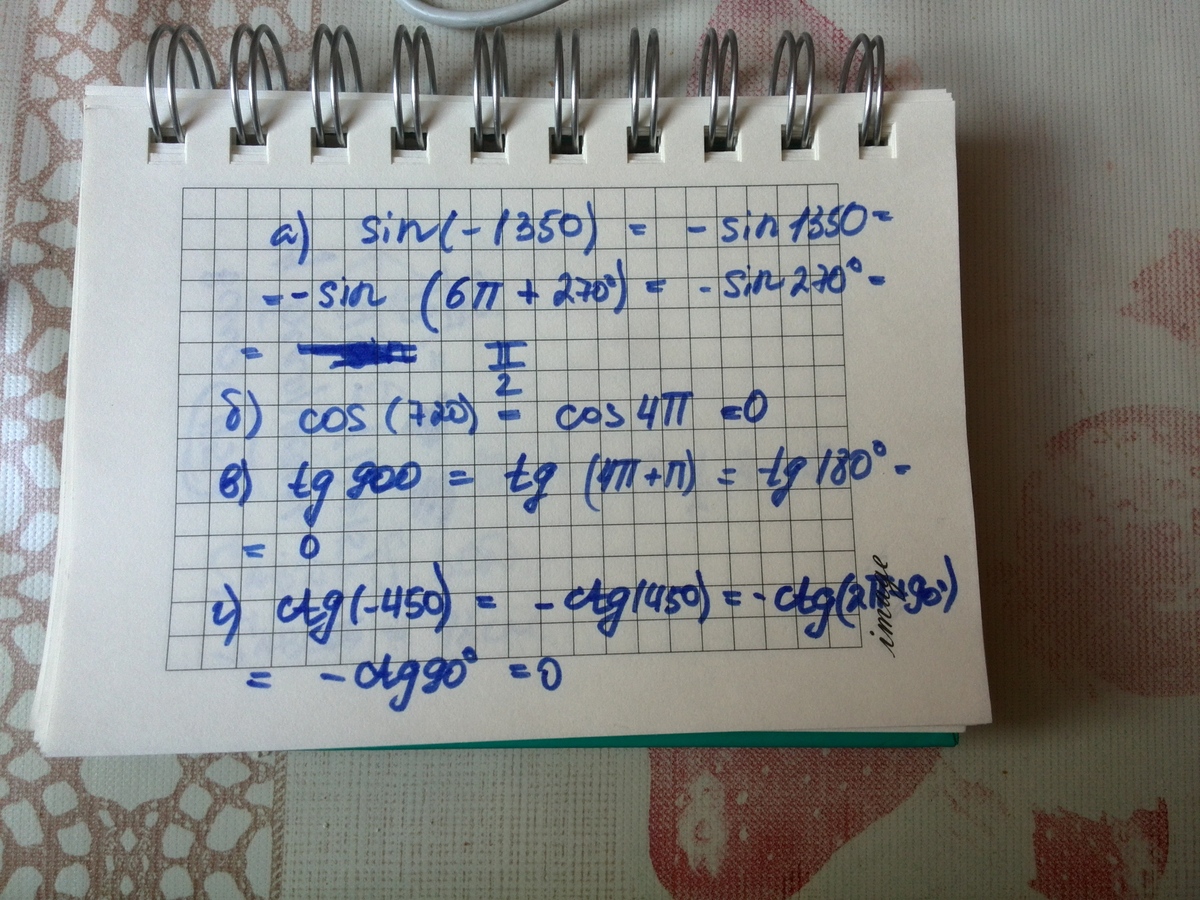 а) sin(-1350) = - sin 1350=
=-sin (6π + 270°) = - sin 270° =
= π/2
б) cos (720) = cos 4π =0
в) tg 900 = tg (4π+π) = tg 180° =
= 0
г) ctg(-450) = -ctg(450) = -ctg(2π+90°)
= -ctg 90° = 0
image